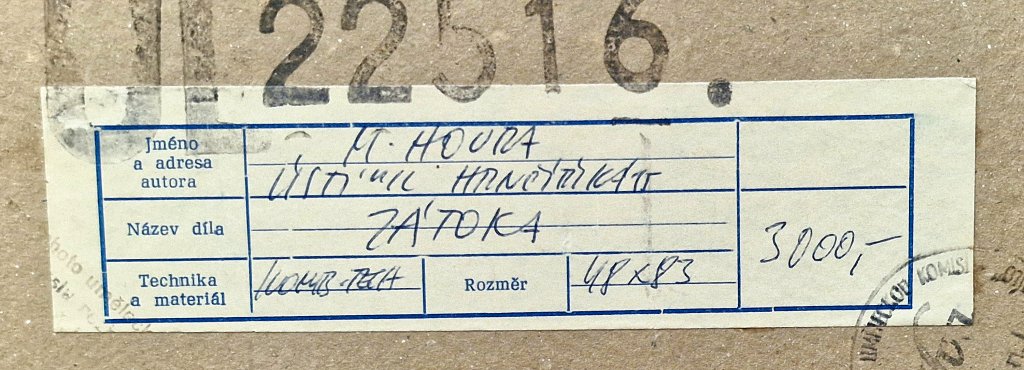 22516.
Jméno
a adresa
autora
M. HOURA
ÚSTÍ
Název díla
ZÁTOKA
3000,-
Technika
a materiál
KOMB. TECH
Rozměr
48 x 83
KOMISI